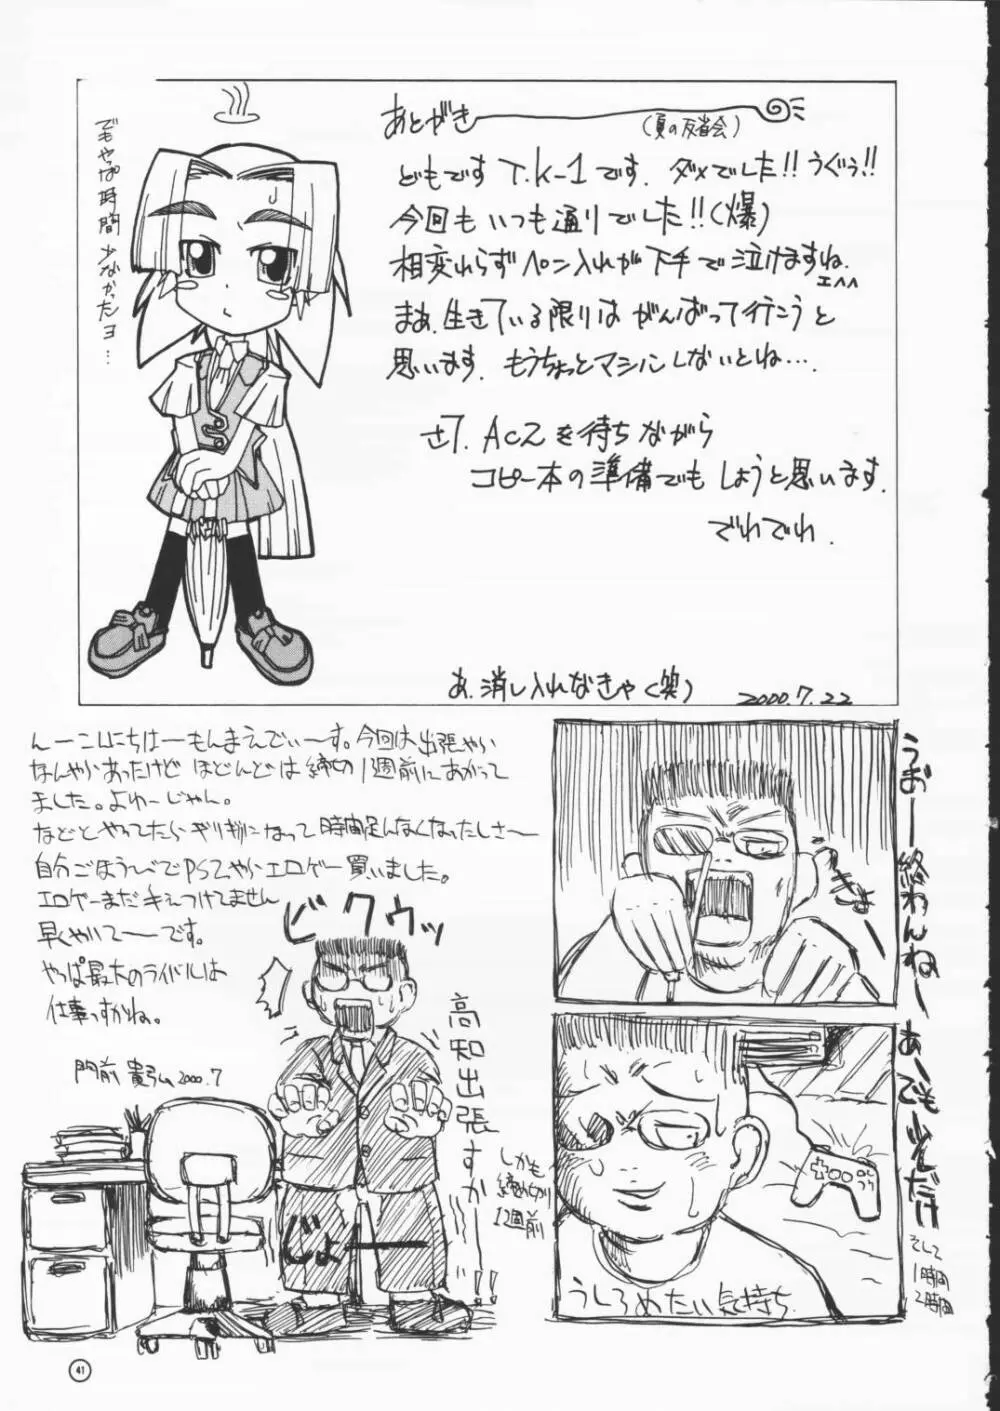 あとがき
(夏の反省会)
どもですT.K-1です。ダメでした!!うぐぅ!!
今回もいつも通りでした!!(爆)
相変わらずペン入れが下手で泣けますね。
エヘヘ
まあ、生きている限りはがんばって行こうと
思います。もうちょっとマシにしないとね…
さて、AC2を待ちながら
コピー本の準備でもしようと思います。
でわでわ。
でもやっぱ時間少なかったヨ…
あ、消し入れなきゃ(笑)
2000.7.22
んーこんにちはーもんまえでぃーす。今回は出張やら
なんやらあったけどほとんどは締切1週前にあがって
ました。よゆーじゃん。
などとやってたらギリギリになって時間足んなくなったしさー
自分ごほうびでPS2やらエロゲー買いました。
エロゲーまだ手えつけてません
早くやりてーです。
やっぱ最大のライバルは
仕事っすかね。
門前 貴弘 2000.7
うおー終わんねー
あーでも少しだけ
そして
1時間
2時間
うしろめたい気持ち
ビクウッ
高知出張すか!!
しかも
締め切り
1週前
じょーー
41